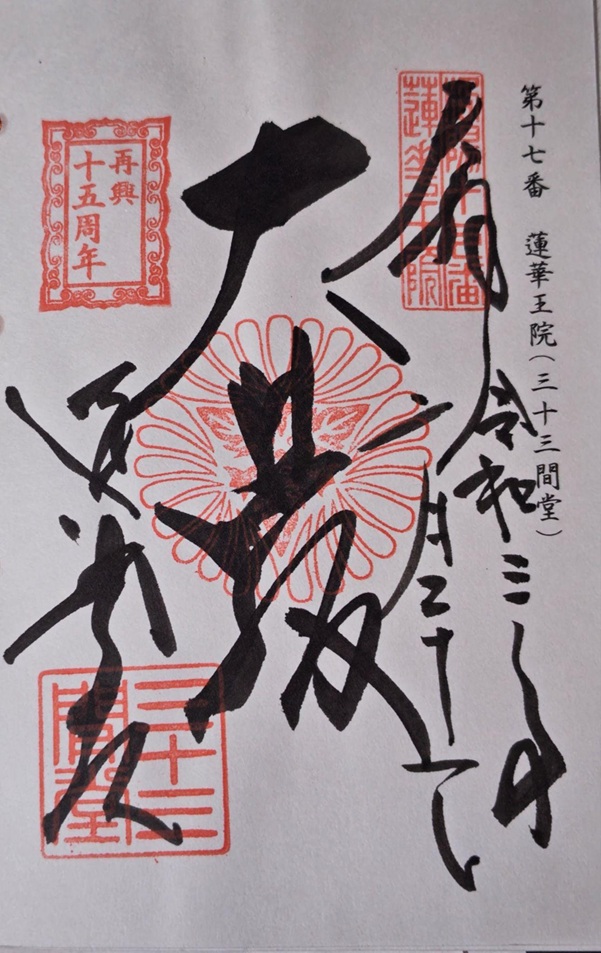 第十七番　蓮華王院（三十三間堂）
奉拝
令和三年
月二十一日
大悲殿
蓮華王院
再興
十五周年
蓮華王院
三十三
間堂